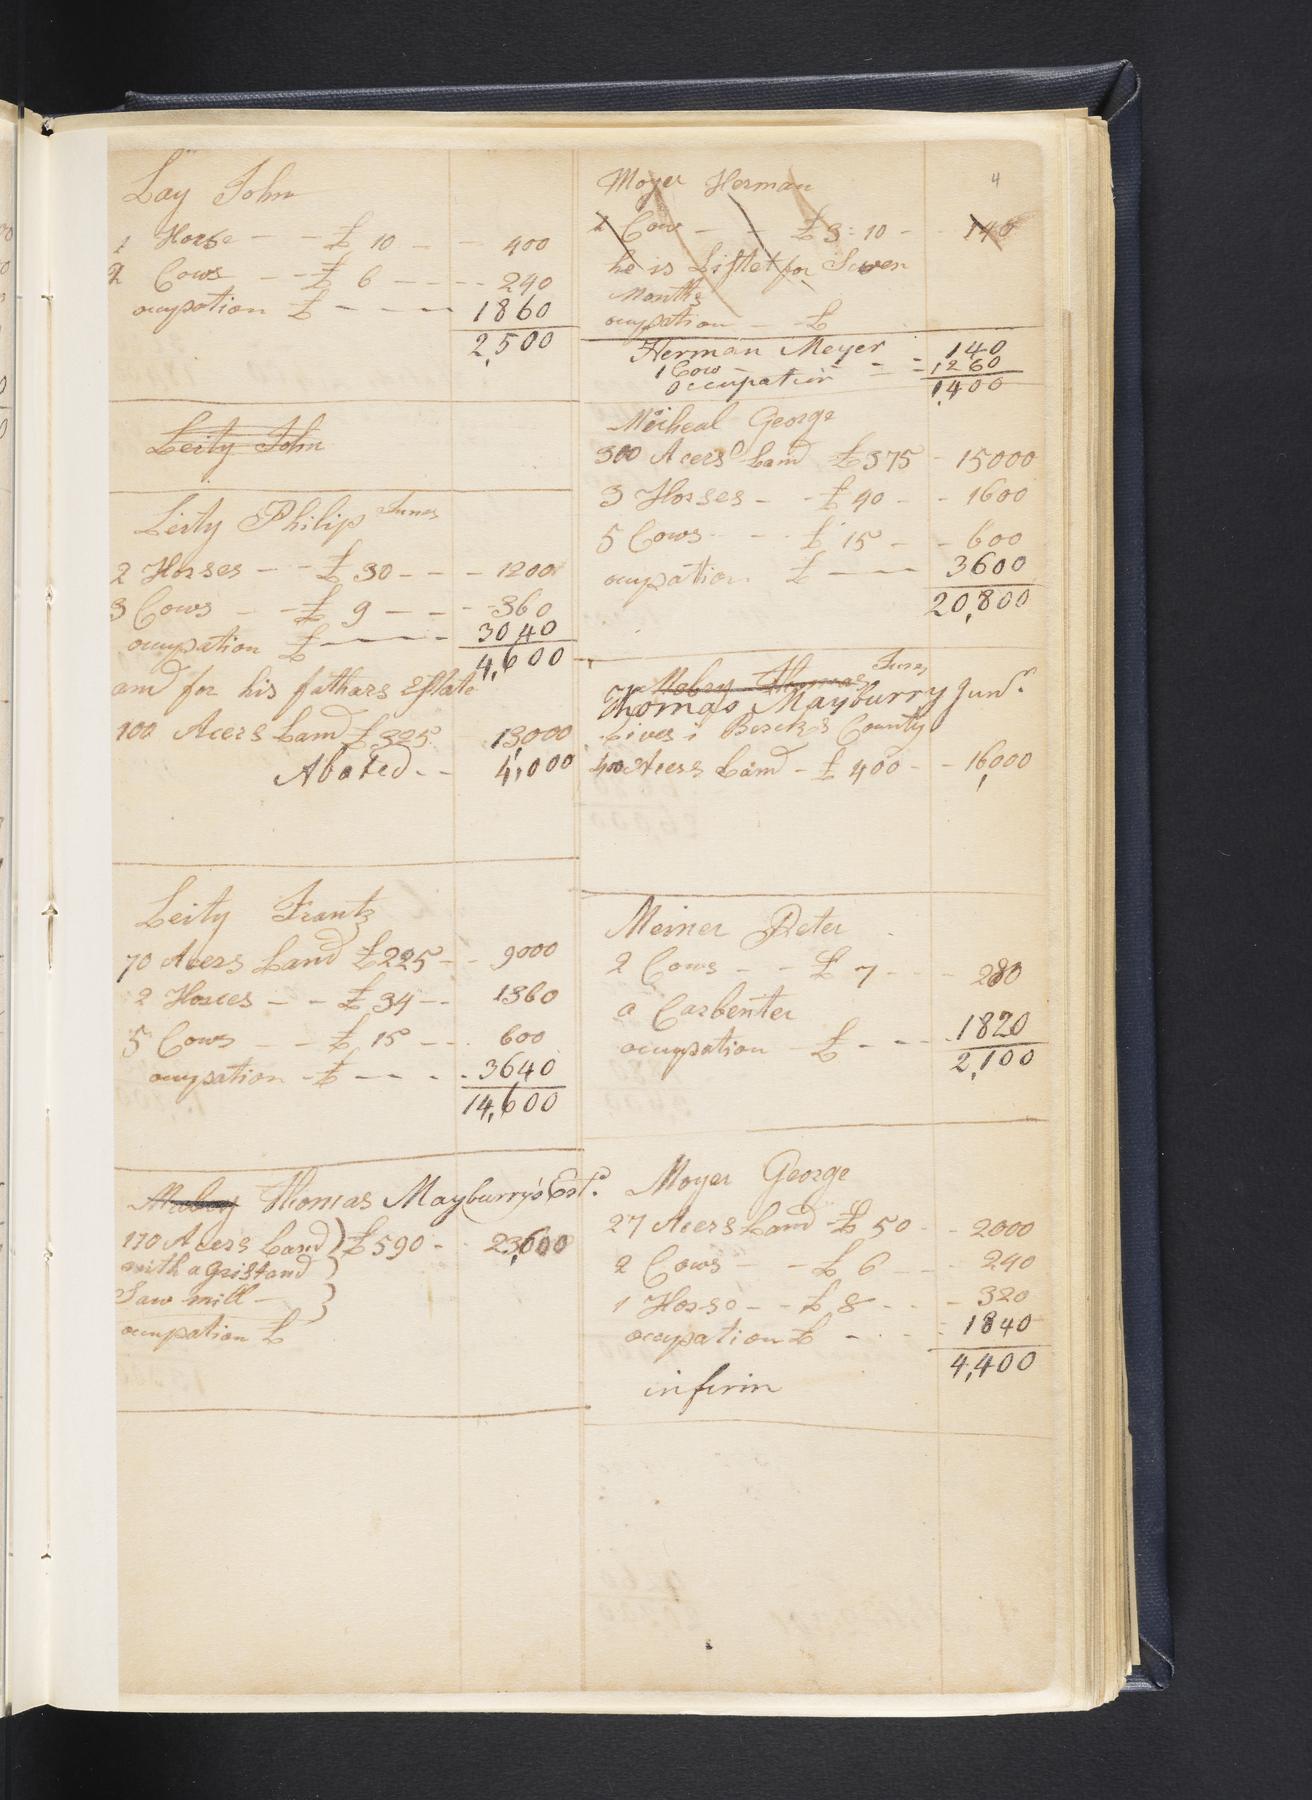 Lay John
1 Horse - - £ 10 - - 400
2 Cows - - £ 6 - - - - 240
ocupation £ - - - 1860
2,500
Leity John
Leity Philip Junr
2 Horses - - £ 30 - - - 1200
3 Cows - - £ 9 - - - 360
ocupation £ - - - - 3040
4,600
and for his fathars Estate
100 Acers Land £ 325 13,000
Abated - - 4,000
Leity Frantz
70 Acers Land £ 225 - - 9000
2 Horces - - £ 34 - - 1360
5 Cows - - £ 15 - - 600
ocupation - £ - - - 3640
14,600
Mabry Thomas Mayburry's Est.
170 Acers Land } £ 590 - 23,600
with a Grist and }
Saw mill - }
ocupation £
4
Moyer Herman
1 Cow - - £ 3:10 - 140
he is Listet for Seven
Months
ocupation - - £
Herman Meyer 140
1 Cow
occupation - = 1260
1,400
Micheal George
300 Acers Land £ 375 - 15000
3 Horses - - £ 40 - - 1600
5 Cows - - £ 15 - - 600
ocupation £ - - - 3600
20,800
Mabry Thomas Junr
Thomas Mayburry Junr.
Lives i Bercks County
400 Acers Land - £ 400 - - 16,000
Meiner Peter
2 Cows - - £ 7 - - - 280
a Carbenter
ocupation - £ - - - 1820
2,100
Moyer George
27 Acers Land - £ 50 - - 2000
2 Cows - - £ 6 - - 240
1 Horse - - £ 8 - - - 320
ocupation £ - - - 1840
4,400
infirm